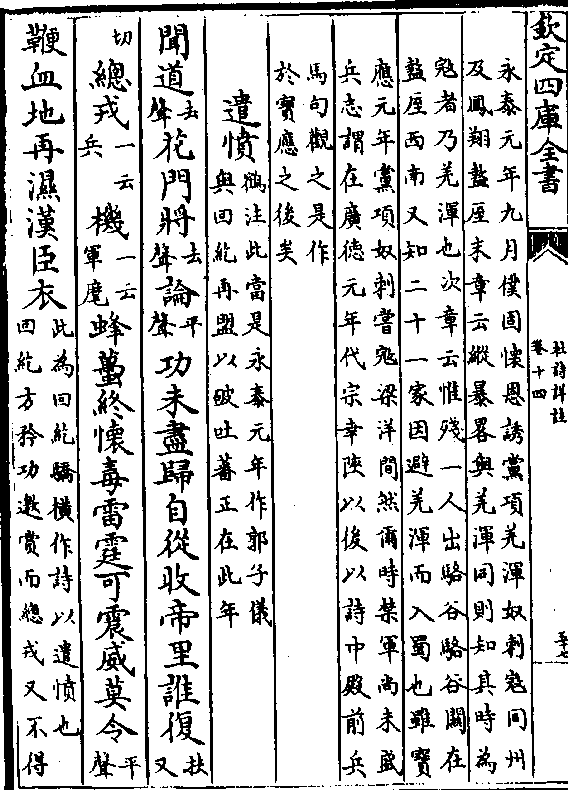 欽定四庫全書
杜詩詳註
卷十四
永泰元年九月僕固懷恩誘黨項羌渾奴剌寇同州
及鳳翔盩厔末章云縱暴畧與羌渾同則知其時為
寇者乃羌渾也次章云惟殘一人出駱谷駱谷關在
盩厔西南又知二十一家因避羌渾而入蜀也雖寶
應元年黨項奴剌嘗寇梁洋間然爾時禁軍尚未盛
兵志謂在廣德元年代宗幸陝以後以詩中殿前兵
馬句觀之是作
於寶應之後矣
遣憤
鶴注此當是永泰元年作郭子儀
與回紇再盟以破吐蕃正在此年
聞道去聲花門將去聲論平聲功未盡歸自從收帝里誰復扶又
切總戎一云兵機一云軍麾蜂蠆終懷毒雷霆可震威莫令平聲
鞭血地再濕漢臣衣
此為回紇驕橫作詩以遣憤也
回紇方矜功邀賞而總戎又不得